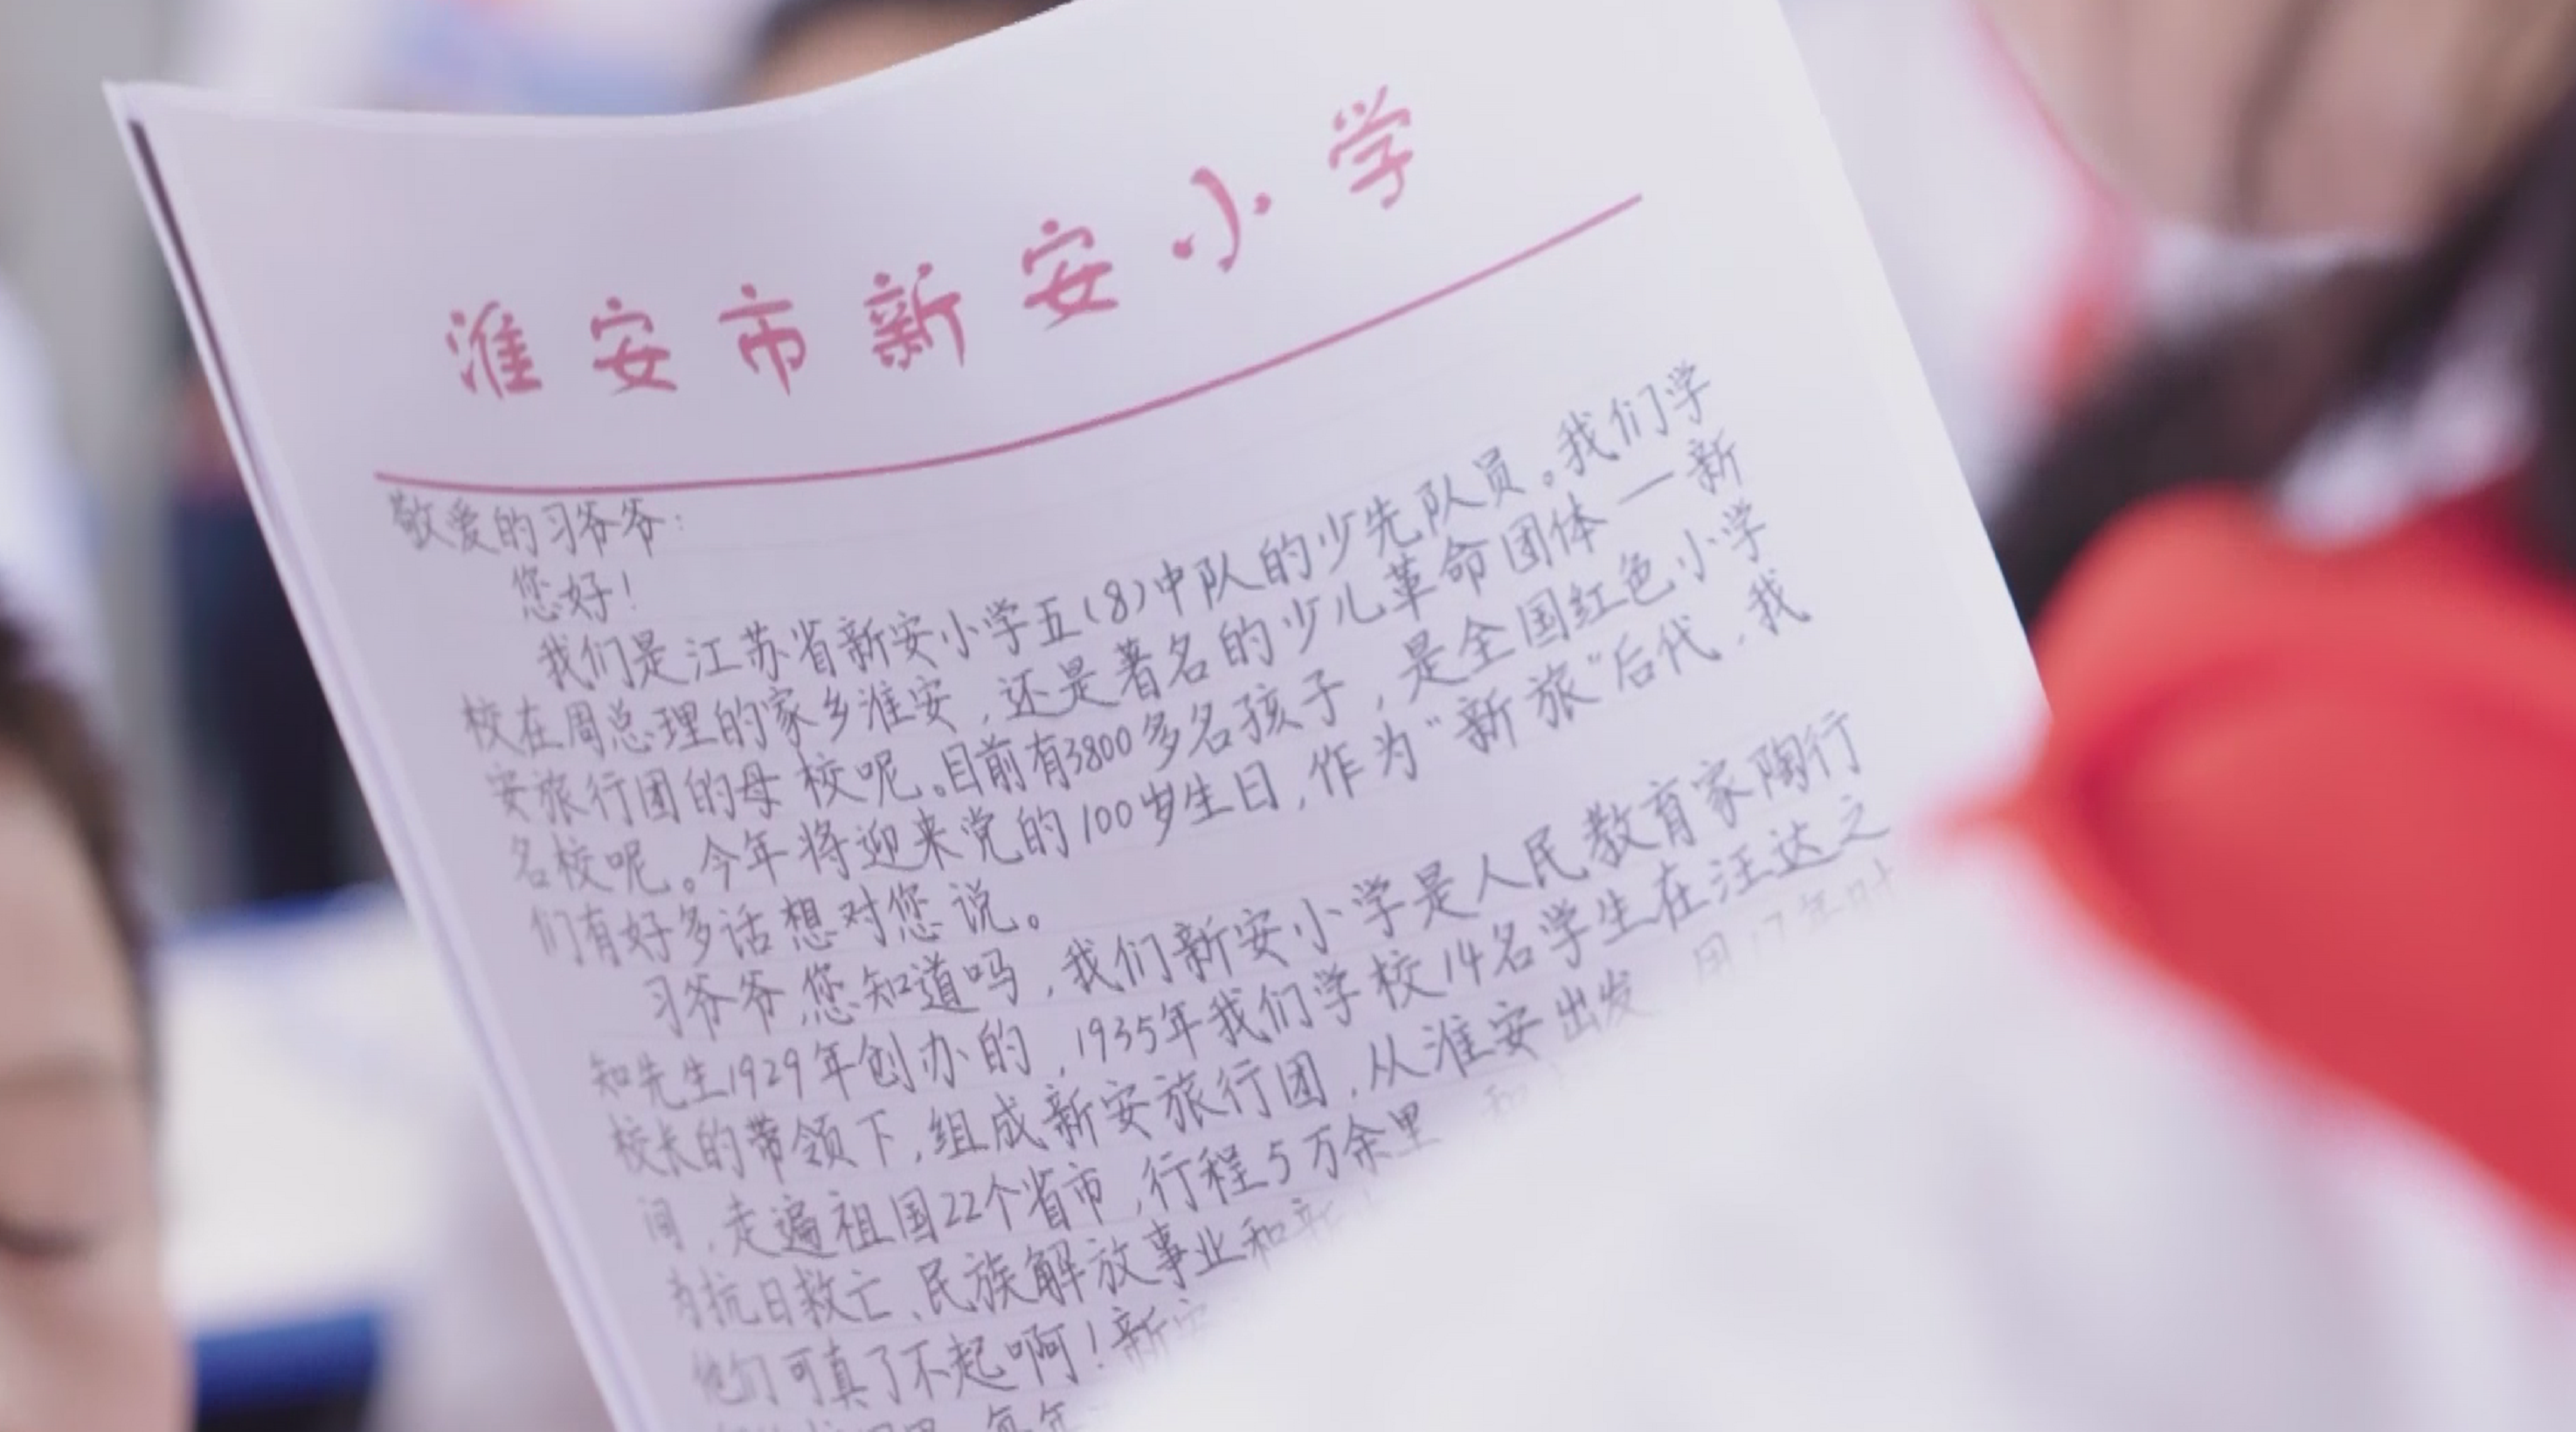 淮安市新安小学
敬爱的习爷爷：
您好！
我们是江苏省新安小学五(8)中队的少先队员。我们学
校在周总理的家乡淮安，还是著名的少儿革命团体—新
安旅行团的母校呢。目前有3800多名孩子，是全国红色小学
名校呢。今年将迎来党的100岁生日，作为“新旅”后代，我
们有好多话想对您说。
习爷爷，您知道吗，我们新安小学是人民教育家陶行
知先生1929年创办的，1935年我们学校14名学生在汪达之
校长的带领下，组成新安旅行团，从淮安出发 用17年时
间，走遍祖国22个省市，行程5万余里
为抗日救亡、民族解放事业和新
他们可真了不起啊！新安
每年